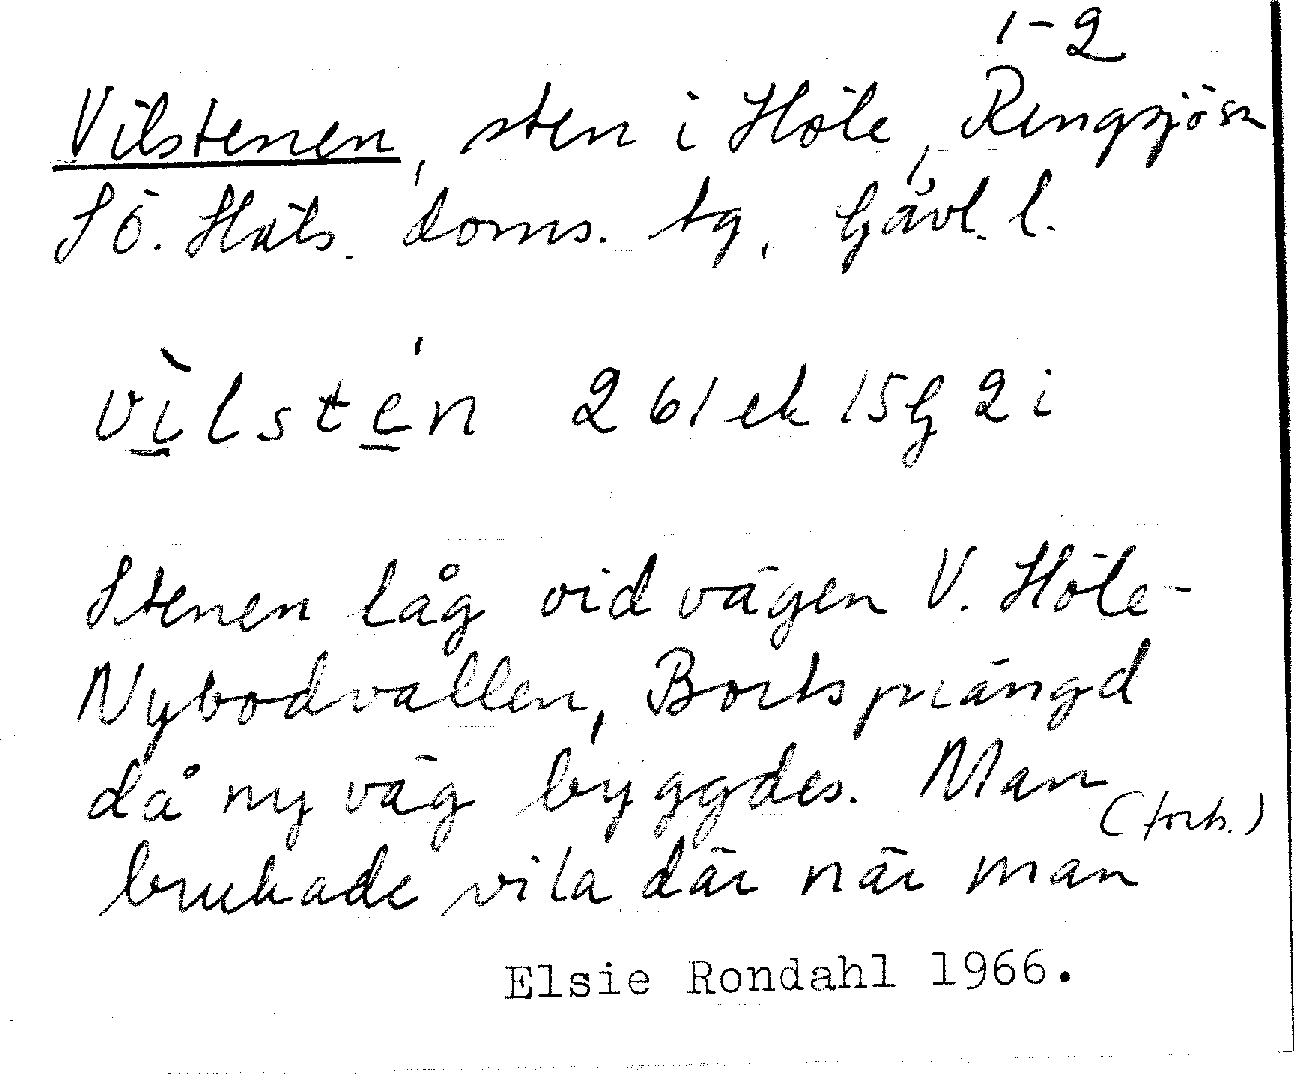 1-2
Vilstenen, sten i Höle, Rengsjö sn
SÖ. Häls. doms. tg, Gävl. l.
vìlstén 2 61 ek 15G 2 i
Stenen låg vid vägen V. Höle-
Nybodvallen, Bortsprängd
då ny väg byggdes. Man
(forts.)
brukade vila där när man
Elsie Rondahl 1966.